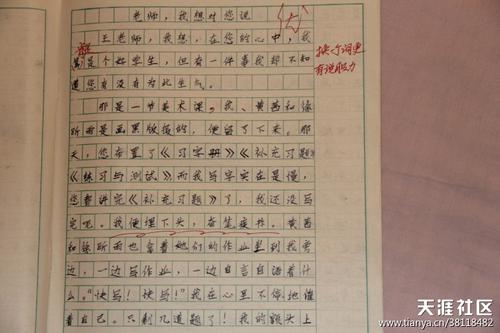 老师，我想对您说
王老师，我想，在您的心中，我
是个好学生，但有一件事我却不知
道您有没有为此生气。
那是一节美术课。我、黄茜和徐
斯雨是画黑板报的，便留了下来。那
天，您布置了《习字册》《补充习题》
《练习与测试》，而我写字实在是慢，
您看讲完《补充习题》了，我还没写
完呢。我便埋下头，奋笔疾书。黄茜
和徐斯雨也拿着她们的作业坐到我旁
边，一边写作业，一边自言自语着什
么。“快写！快写！”我在心里不停地催
着自己。只剩几道题了！我的额头上
换个词更
有说服力
天涯社区
www.tianya.cn/38118482